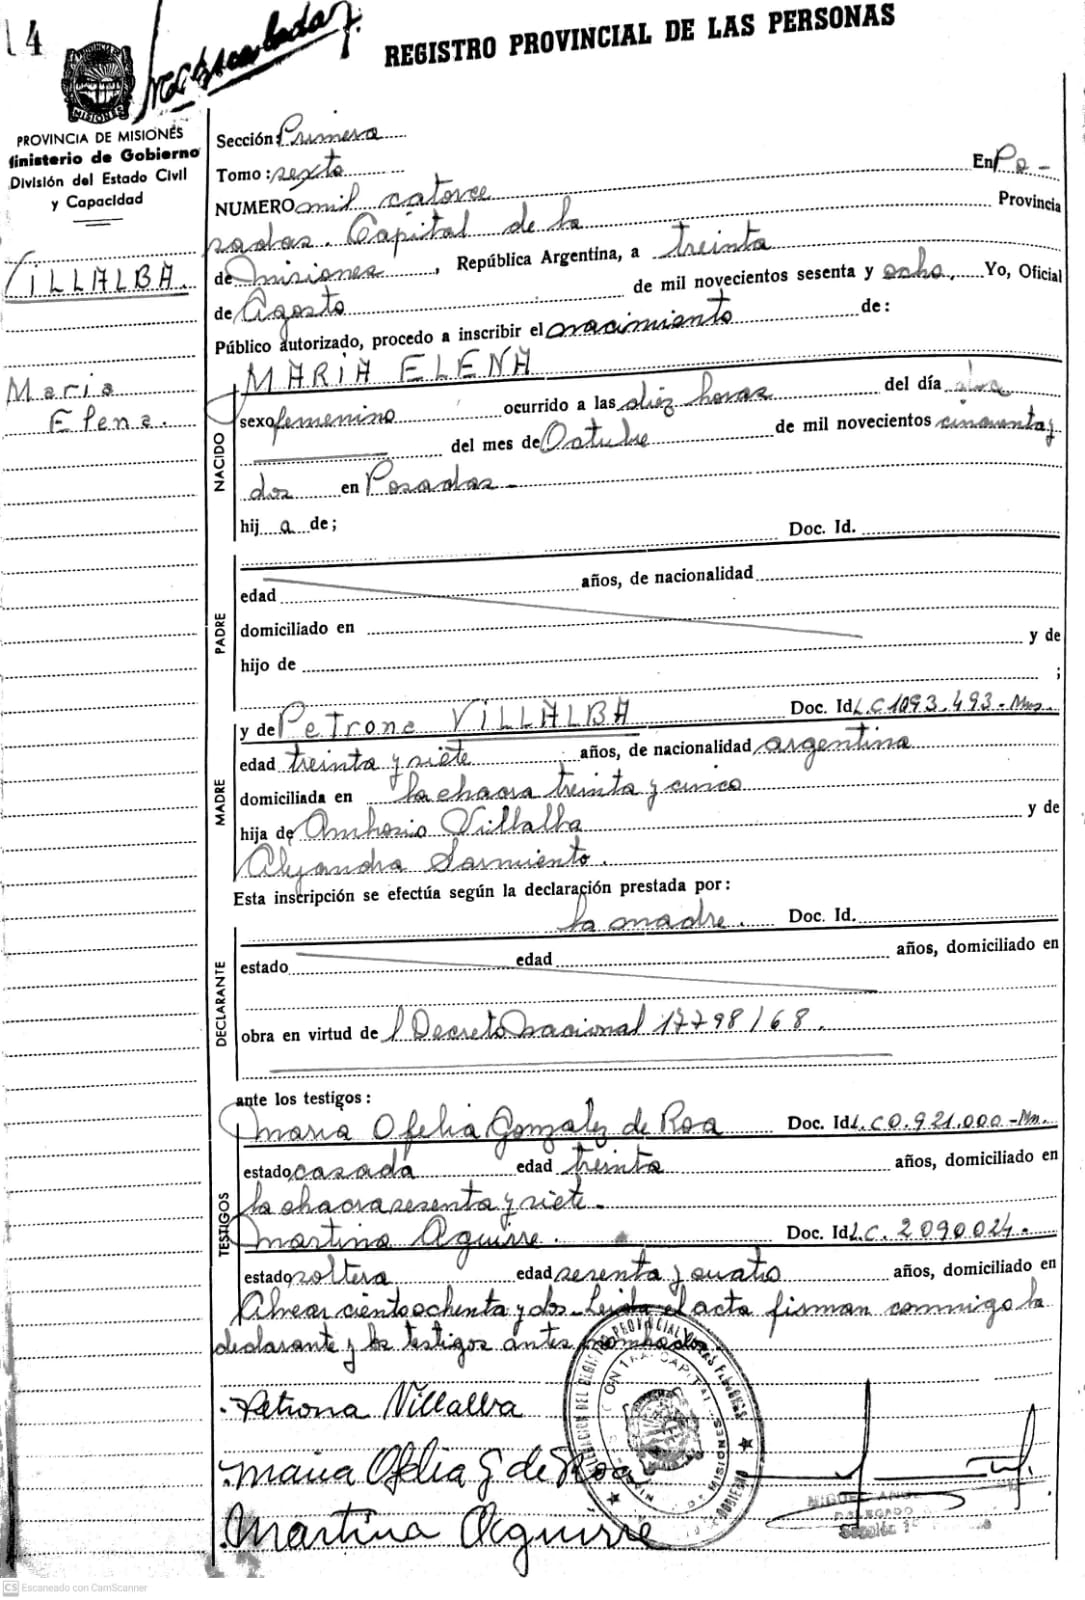 14
REGISTRO PROVINCIAL DE LAS PERSONAS
MISIONES
PROVINCIA DE MISIONES
Ministerio de Gobierno
División del Estado Civil
y Capacidad
VILLALBA.
Maria
Elena.
Sección: Primera
Tomo: sexto
NUMERO mil catorce En Po-
sadas. Capital de la Provincia
de Misiones, República Argentina, a treinta
de Agosto de mil novecientos sesenta y ocho, Yo, Oficial
Público autorizado, procedo a inscribir el nacimiento de:
MARIA ELENA
NACIDO
sexo femenino ocurrido a las diez horas del día
del mes de Octubre de mil novecientos cincuenta y
dos en Posadas-
hij a de; Doc. Id.
PADRE
edad años, de nacionalidad
domiciliado en
hijo de y de
;
MADRE
y de Petrona VILLALBA Doc. Id L.C 1093.493-Mns.
edad treinta y siete años, de nacionalidad argentina
domiciliada en la chacra treinta y cinco
hija de Ambrosio Villalba y de
Alejandra Sarmiento.
Esta inscripción se efectúa según la declaración prestada por:
la madre. Doc. Id.
DECLARANTE
estado edad años, domiciliado en
obra en virtud de l Decreto nacional 17798/68.
ante los testigos:
TESTIGOS
Maria Ofelia Gonzalez de Roa Doc. Id L.C 0.921.000-Mn.
estado casada edad treinta años, domiciliado en
la chacra sesenta y siete.
Martina Aguirre. Doc. Id L.C. 2090024-
estado soltera edad sesenta y cuatro años, domiciliado en
Alvear ciento ochenta y dos- Leida el acta firman conmigo la
declarante y los testigos antes nombrados
Petrona Villalba
Maria Ofelia G de Roa
Martina Aguirre
MIGUEL ANGE
DELEGADO
Sección 1ª
CS Escaneado con CamScanner